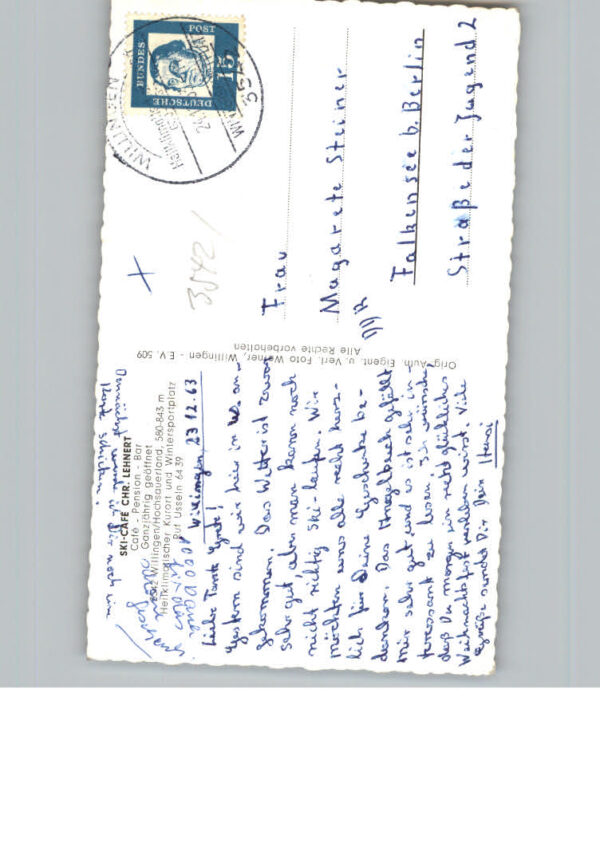 SKI-CAFE CHR. LEHNERT
Café - Pension - Bar
Ganzjährig geöffnet
Willingen/Hochsauerland, 580-843 m
Heilklimatischer Kurort und Wintersportplatz
Ruf Usseln 64 39
Willingen, 23.12.63
Liebe Tante Grete!
Gestern sind wir hier in W. an-
gekommen. Das Wetter ist zwar
sehr gut aber man kann noch
nicht richtig Ski-laufen. Wir
möchten uns alle recht herz-
lich für Deine Geschenke be-
danken. Das Angelbuch gefällt
mir sehr gut und es ist sehr in-
teressant zu lesen. Ich wünsche,
daß Du morgen ein recht glückliches
Weihnachtsfest verleben wirst. Viele
Grüße sendet Dir Dein
Orig. Aufn. Eigent. u. Verl. Foto Werner, Willingen - E.V. 509
Alle Rechte vorbehalten
DEUTSCHE
BUNDES
POST
15
WILLINGEN
3542
Frau
Magarete Steiner
Falkensee b. Berlin
Straße der Jugend 2